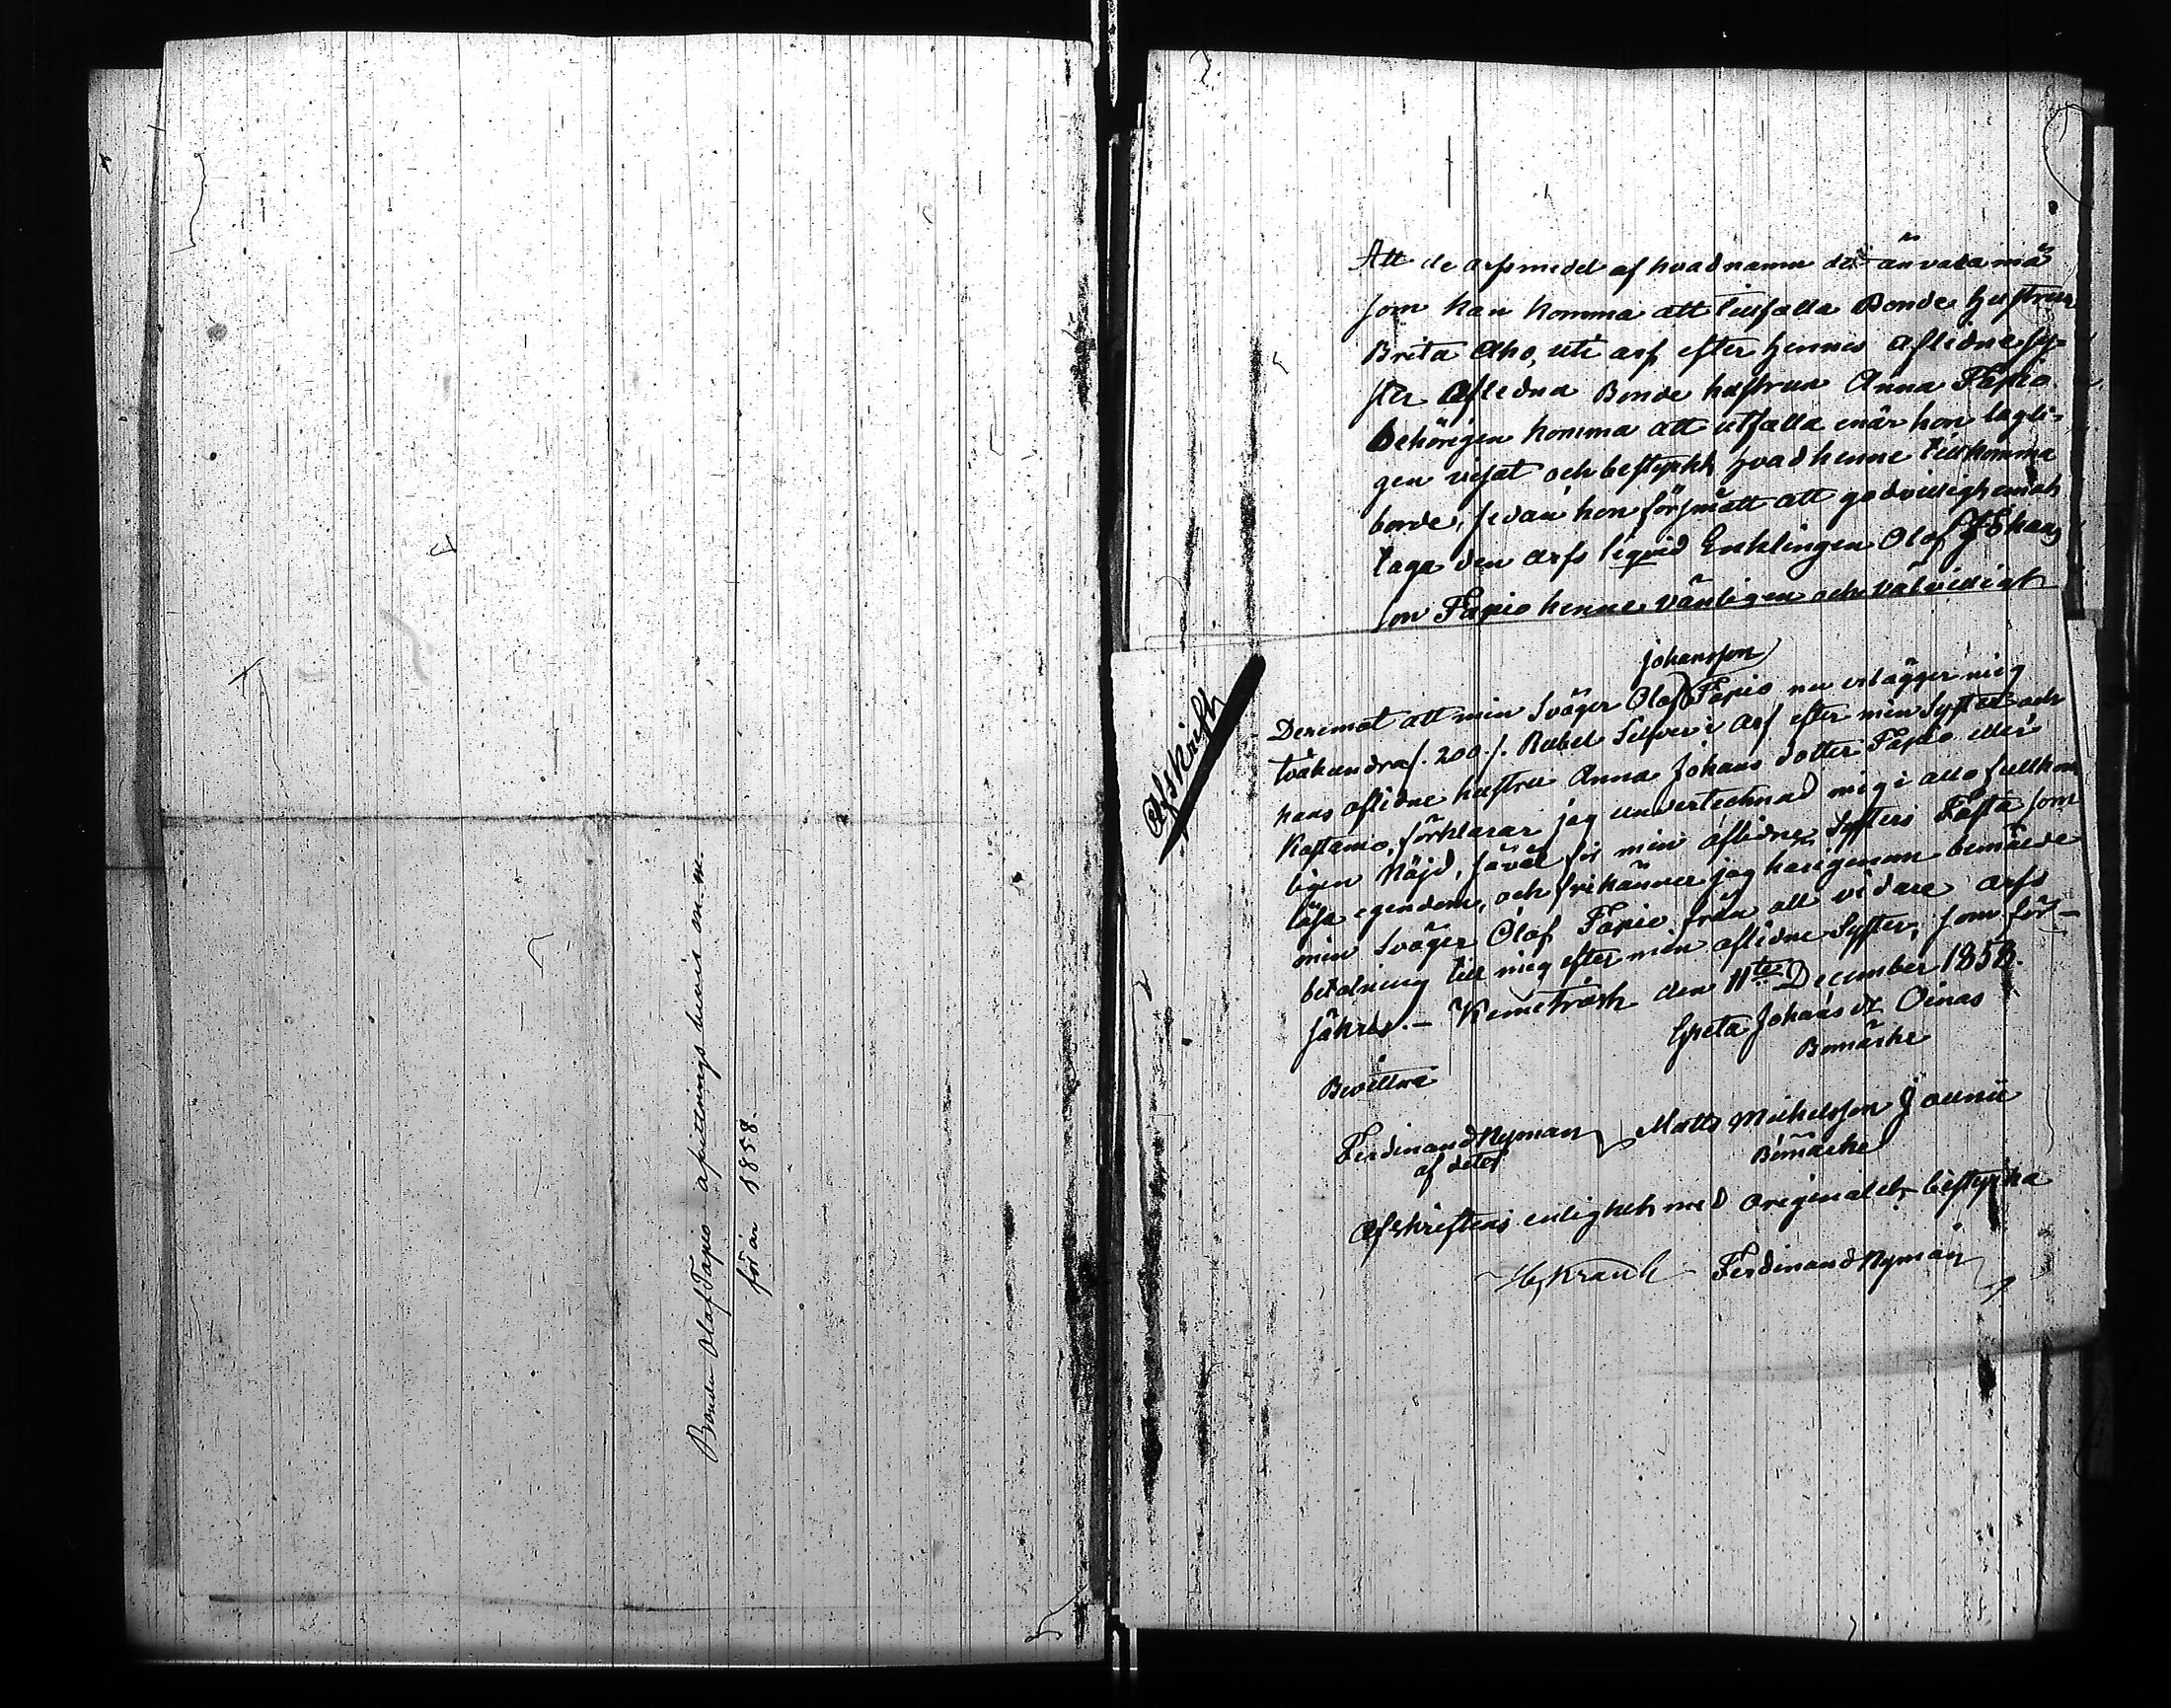 Bonden Olaf Tapios afvittrings bevis m. m.
för år 1858.
Att de arfsmedel af hvad namn de än vara må
som kan komma att tillfalla Bonde hustrun
Brita Aho, uti arf efter hennes aflidne sy-
ster Aflidna Bonde hustrun Anna Tapio
behörigen komma att utfalla enär hon lagli-
gen visat och bestyrkt hvad henne tillkomma
borde, sedan hon försmått att godvilligen
taga den arfs liqvid Enklingen Olof Johans
son Tapio henne vänligen och välvilligt
Afskrift
Johansson
Deremot att min Svåger Olof Tapio nu erlägger mig
tvåhundra /. 200 ./. Rubel Silfver i arf efter min Syster och
hans aflidne hustru Anna Johans dotter Tapio eller
Kostamo, förklarar jag undertecknad mig i allo fullkom
ligen Nöjd, såväl för min aflidne Systers Fasta som
lösa egendom, och frikänner jag härigenom bemälde
min Svåger Olof Tapio från all vidare arfs
betalning till mig efter min aflidne Syster, som för-
säkras. - Kemiträsk den 11te December 1858.
Greta Johans dr Oinas
Bomärke
Bevittna
Ferdinand Nyman Matts Michelsson Jaunu
af ditot Bomärke
Afskriftens enlighet med originalet bestyrka
Hg Krank Ferdinand Nyman